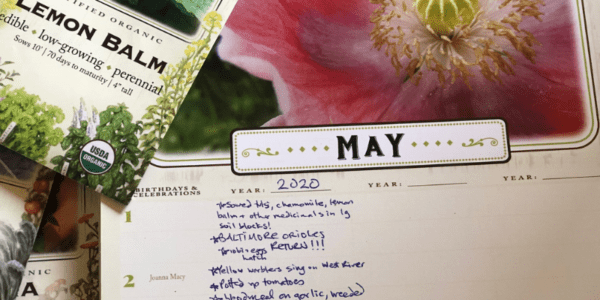 TIFIED ORGANIC
LEMON BALM
edible • low-growing • perennial
Sows 10' | 70 days to maturity | 4" tall
USDA
ORGANIC
MAY
BIRTHDAYS &
CELEBRATIONS
YEAR: 2020 YEAR: YEAR:
1
*Sowed chamomile, lemon
balm + other medicinals in 1g
soil blocks!
*BALTIMORE ORIOLES
RETURN!!!
*robin eggs
hatch
2 Joanna Macy
*Yellow warblers sing on West River
*Potted up tomatoes
on garlic, weeded
NIC
A